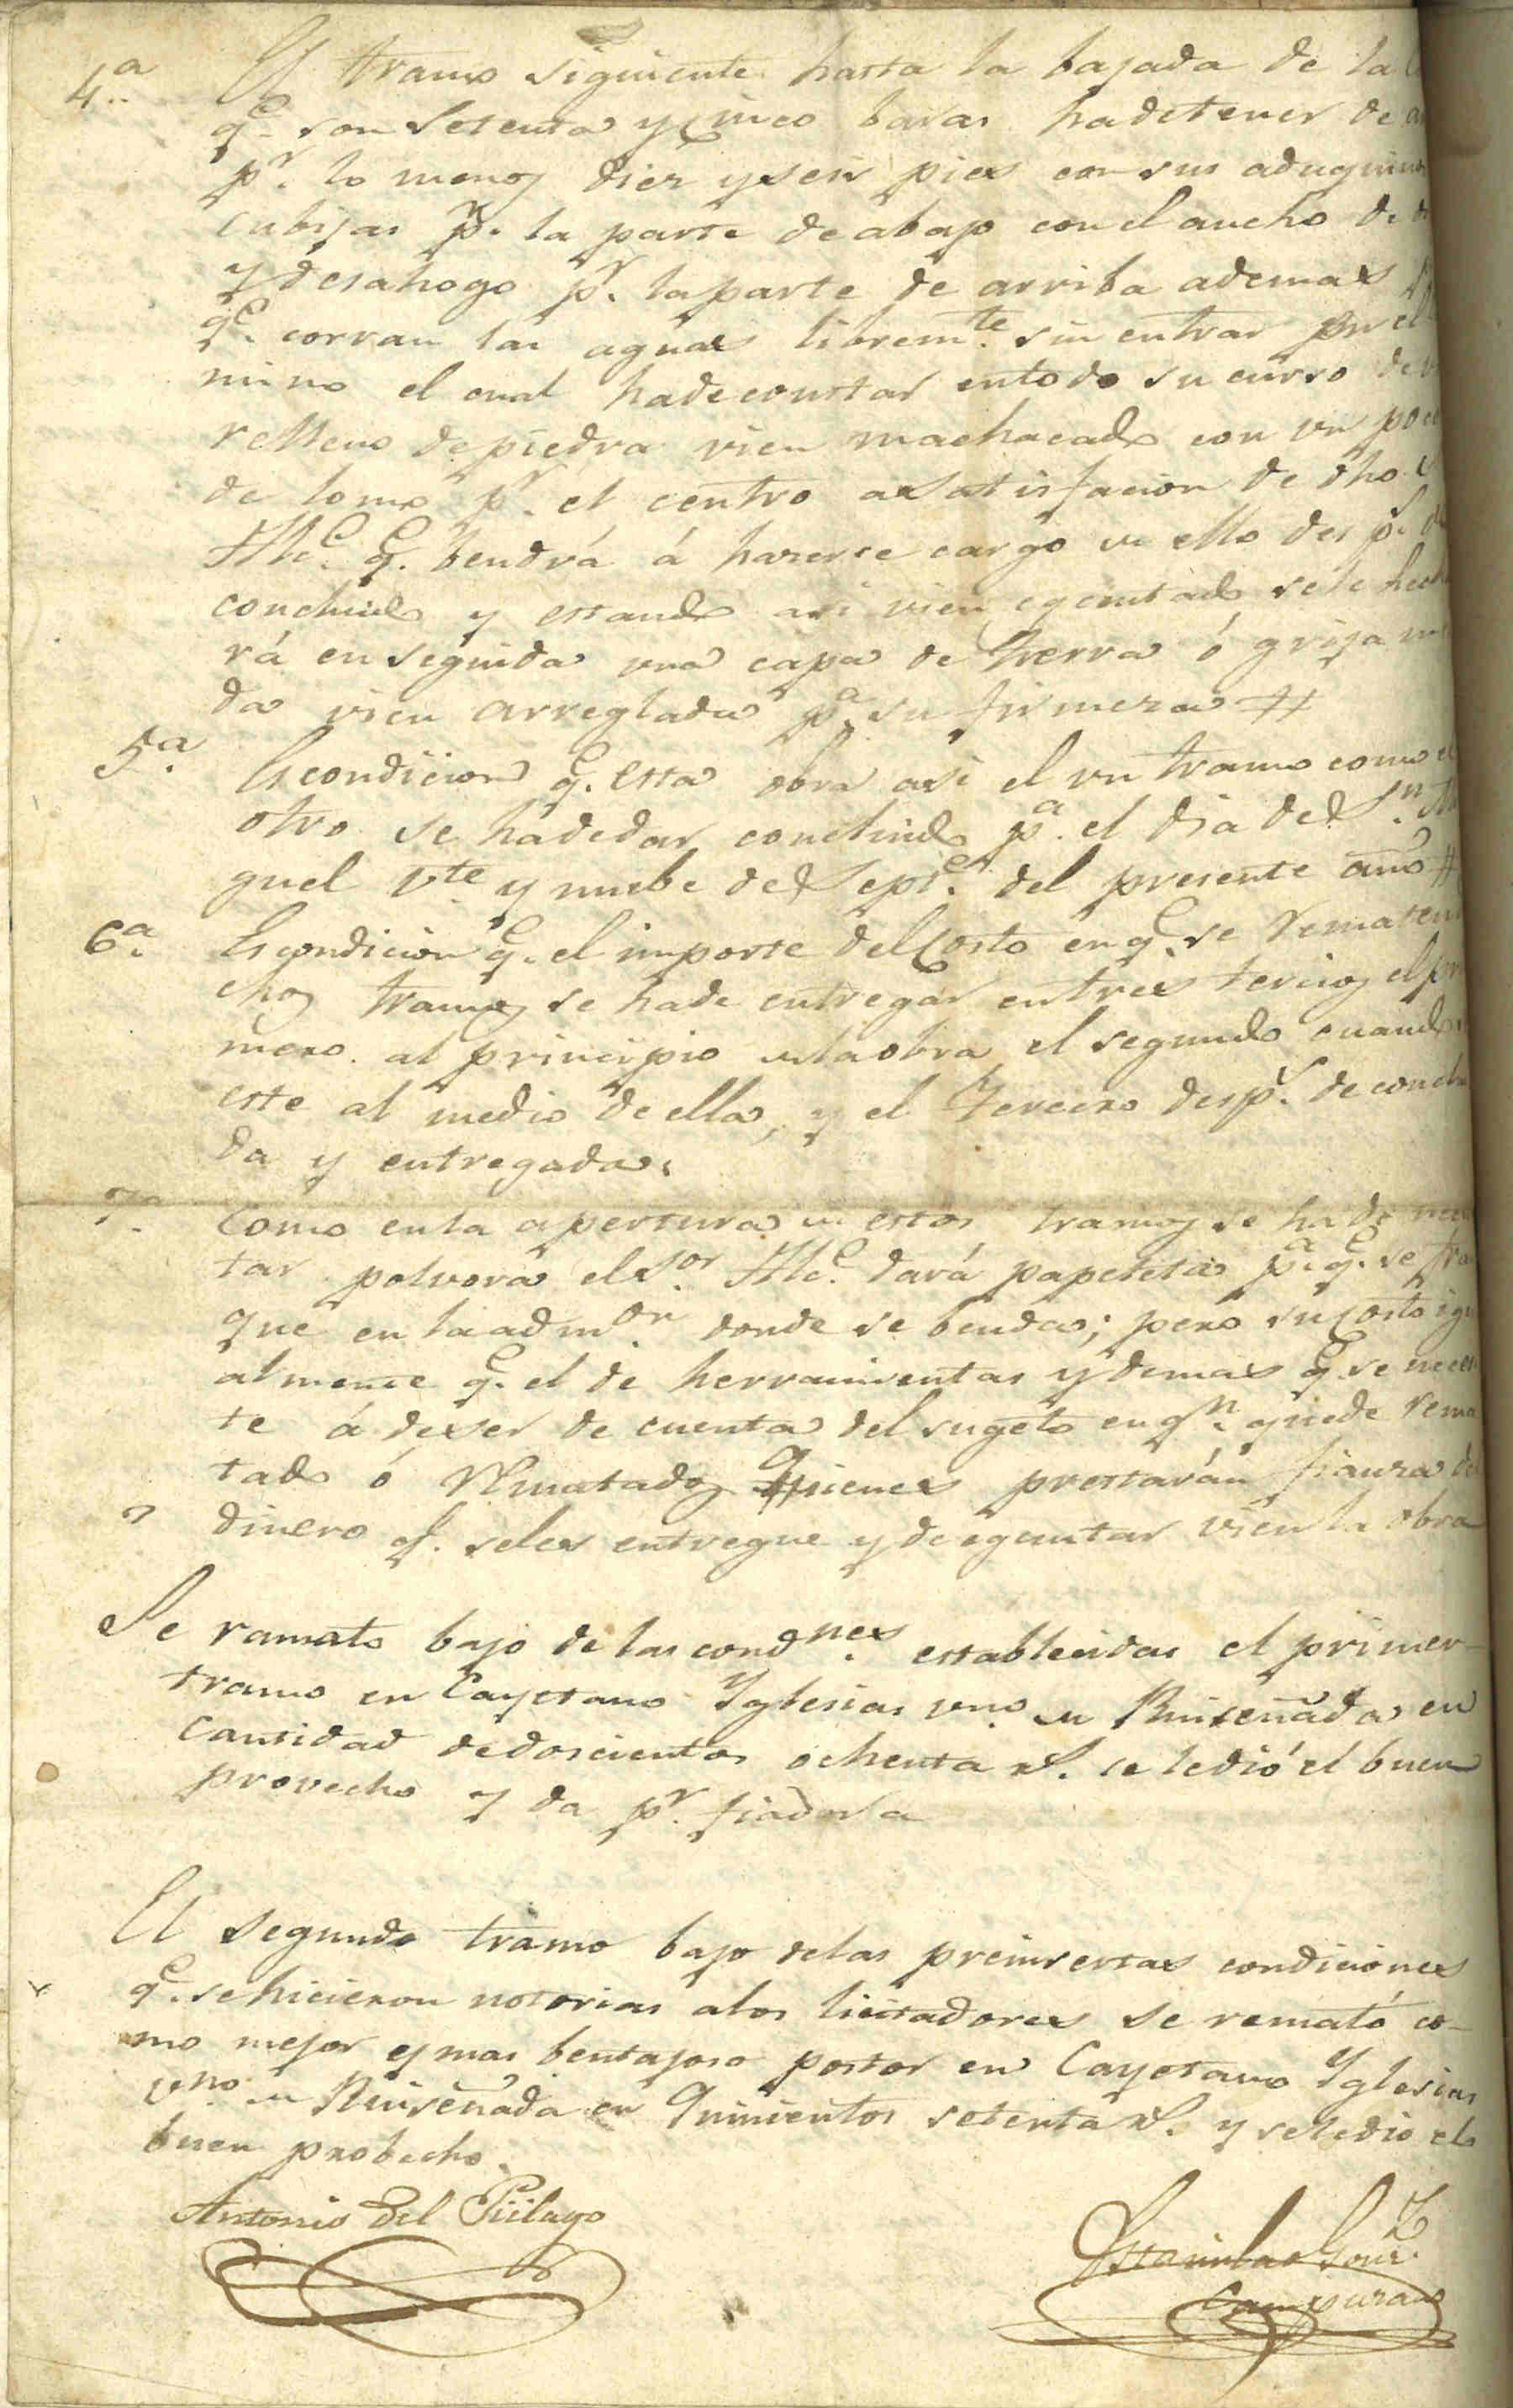 4.ª El tramo siguiente hasta la bajada de la
q.e son Setenta y Cinco baras hadetener de
p.r lo menos diez y seis pies con sus aduquines
cubijas p.r la parte de abajo con el ancho de
y desahogo p.r la parte de arriba ademas
q.e corran las aguas librem.te sin entrar por el
mino el cual hadeconstar entodo su curso de
relleno de piedra vien machacado con un poco
de lomo p.r el centro a satisfacion de dho
Alc.e q.e bendrá á hazerse cargo de ello desp.s
concluido y estando asi vien egecutado sele hecha
rá enseguida una capa de tierra ó grija
da vien arreglada p.a su firmeza #
5.ª Es condicion q.e esta obra asi el un tramo como el
otro se hadedar concluido p.a el dia de S.n Mi
guel v.te y nuebe de Sept.e del presente año #
6.ª Es condicion q.e el importe del Costo en q.e se Rematen
chos tramos se hade entregar en tres tercios el pri
mero al principio de la obra el segundo cuando
este al medio de ella, y el tercero desp.s de conclui
da y entregada.
7.ª Como en la apertura de estos tramos se ha de
tar polvora el S.or Alc.e dará papeleta p.a q.e se fran
que en la adm.on donde se benda; pero su Costo igu
almente q.e el de herramientas y demas q.e se necesi
te á de ser de cuenta del sugeto en q.n quede Rema
tado ó Rematados Quienes prestarán fianza de
dinero q.e seles entregue y de egecutar vien la obra
Se ramato bajo de las cond.nes establecidas el primer
tramo en Cayetano Yglesias vno. de Ruiseñada en
cantidad dedoscientos ochenta r.s se ledió el buen
provecho y da p.r fiador a
El segundo tramo bajo delas preinsertas condiciones
q.e se hicieron notorias alos licitadores se remató co-
mo mejor y mas bentajoso postor en Cayetano Yglesias
vno. de Ruiseñada en Quinientos setenta r.s y seledio el
buen probecho.
Antonio Del Piélago
Estanislao Gonz.z